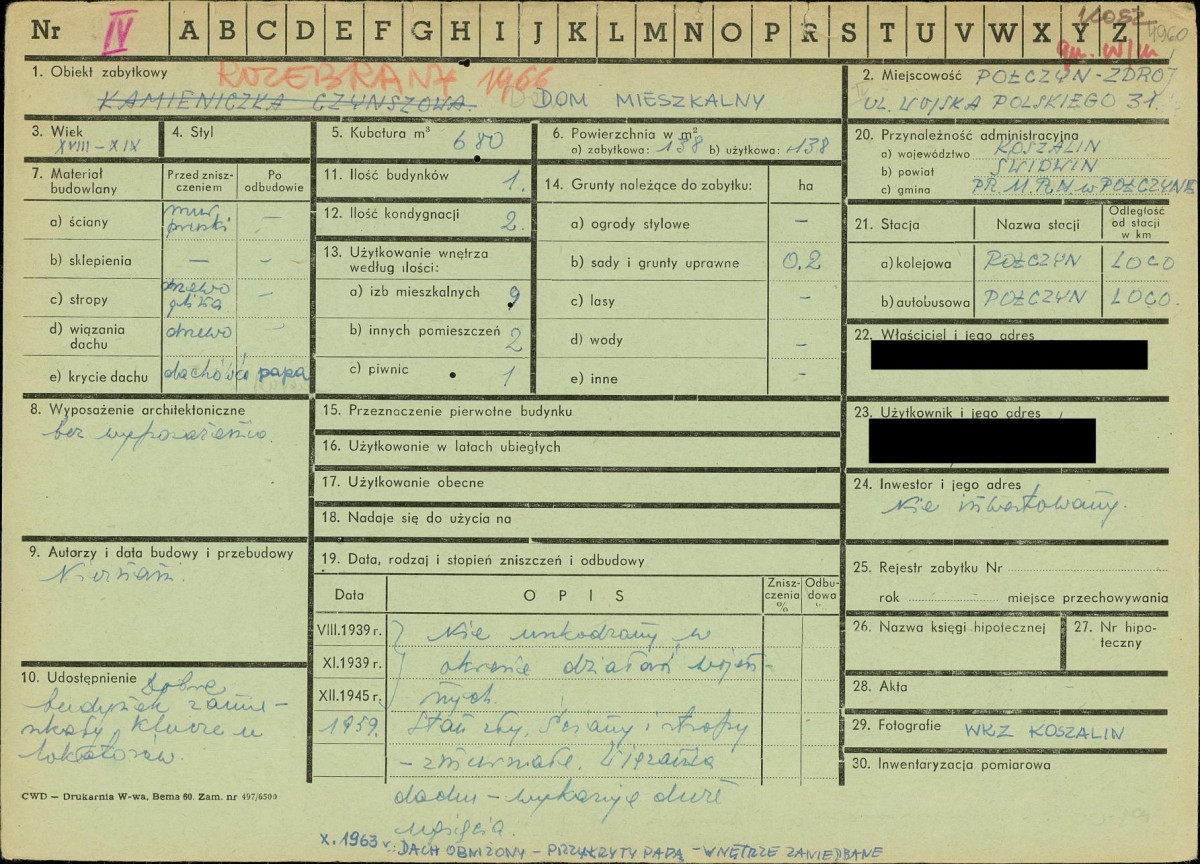 Nr IV A B C D E F G H I J K L M N O P R S T U V W X Y Z
KOSZ
4960
gm. w/m
1. Obiekt zabytkowy ROZEBRANY 1966
KAMIENICZKA CZYNSZOWA. DOM MIESZKALNY
2. Miejscowość POŁCZYN-ZDRÓJ
UL. WOJSKA POLSKIEGO 31.
3. Wiek
XVIII-XIX
4. Styl
5. Kubatura m³ 680
6. Powierzchnia w m²
a) zabytkowa: 138 b) użytkowa: 138
20. Przynależność administracyjna
a) województwo KOSZALIN
b) powiat ŚWIDWIN
c) gmina PR. M. R. N w POŁCZYNIE
7. Materiał budowlany
Przed zniszczeniem
Po odbudowie
a) ściany mur pruski -
b) sklepienia - -
c) stropy drzewo glina -
d) wiązania dachu drzewo -
e) krycie dachu dachówka papa
11. Ilość budynków 1.
12. Ilość kondygnacji 2.
13. Użytkowanie wnętrza
według ilości:
a) izb mieszkalnych 9
b) innych pomieszczeń 2
c) piwnic 1
14. Grunty należące do zabytku: ha
a) ogrody stylowe -
b) sady i grunty uprawne 0.2
c) lasy -
d) wody -
e) inne -
21. Stacja
Nazwa stacji
Odległość od stacji w km
a) kolejowa POŁCZYN LOCO
b) autobusowa POŁCZYN LOCO.
22. Właściciel i jego adres
23. Użytkownik i jego adres
24. Inwestor i jego adres
Nie inwestowany.
8. Wyposażenie architektoniczne
bez wyposażenia.
15. Przeznaczenie pierwotne budynku
16. Użytkowanie w latach ubiegłych
17. Użytkowanie obecne
18. Nadaje się do użycia na
9. Autorzy i data budowy i przebudowy
Nieznani.
19. Data, rodzaj i stopień zniszczeń i odbudowy
Data
OPIS
Zniszczenia %
Odbudowa %
VIII.1939 r. Nie uszkodzony w
XI.1939 r. okresie działań wojen-
XII.1945 r. nych.
1959. Stan zły, ściany i stropy
- zmurszałe. Wiązania
dachu - wykazują duże
ugięcia.
X. 1963 r. DACH OBNIŻONY - PRZYKRYTY PAPĄ - WNĘTRZE ZANIEDBANE
10. Udostępnienie Dobre
budynek zamie-
szkały, klucze u
lokatorów.
25. Rejestr zabytku Nr
rok miejsce przechowywania
26. Nazwa księgi hipotecznej
27. Nr hipoteczny
28. Akta
29. Fotografie WKZ KOSZALIN
30. Inwentaryzacja pomiarowa
CWD — Drukarnia W-wa, Bema 60. Zam. nr 497/6500